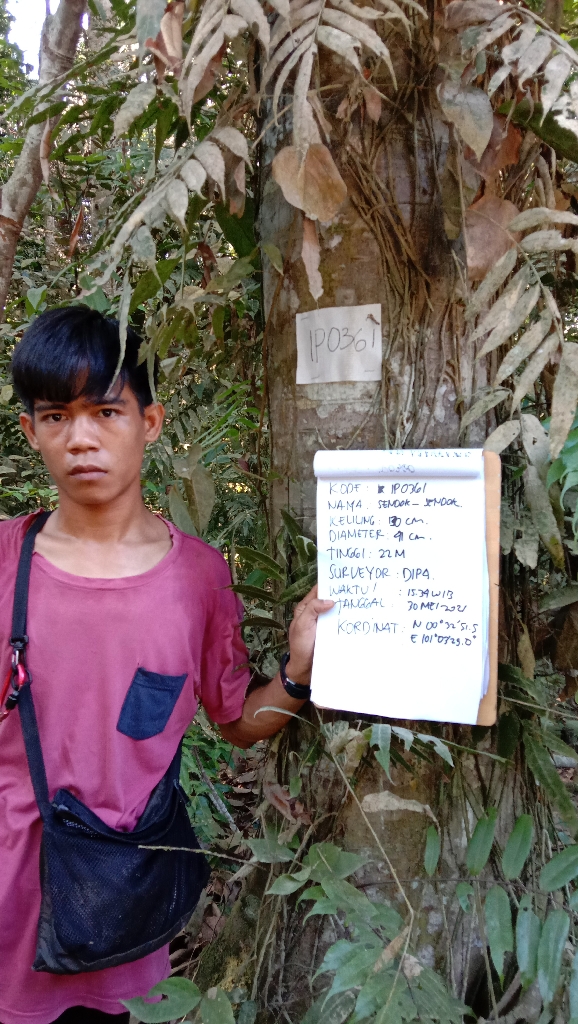 IPO361
KODE : IPO361
NAMA : SENDOK - SENDOK
KELILING : 130 cm.
DIAMETER : 41 cm.
TINGGI : 22 M
SURVEYOR : DIPA.
WAKTU : 15.34 WIB
TANGGAL : 30 MEI 2021
KORDINAT : N 00° 32' 51.5
E 101° 03' 29.0"